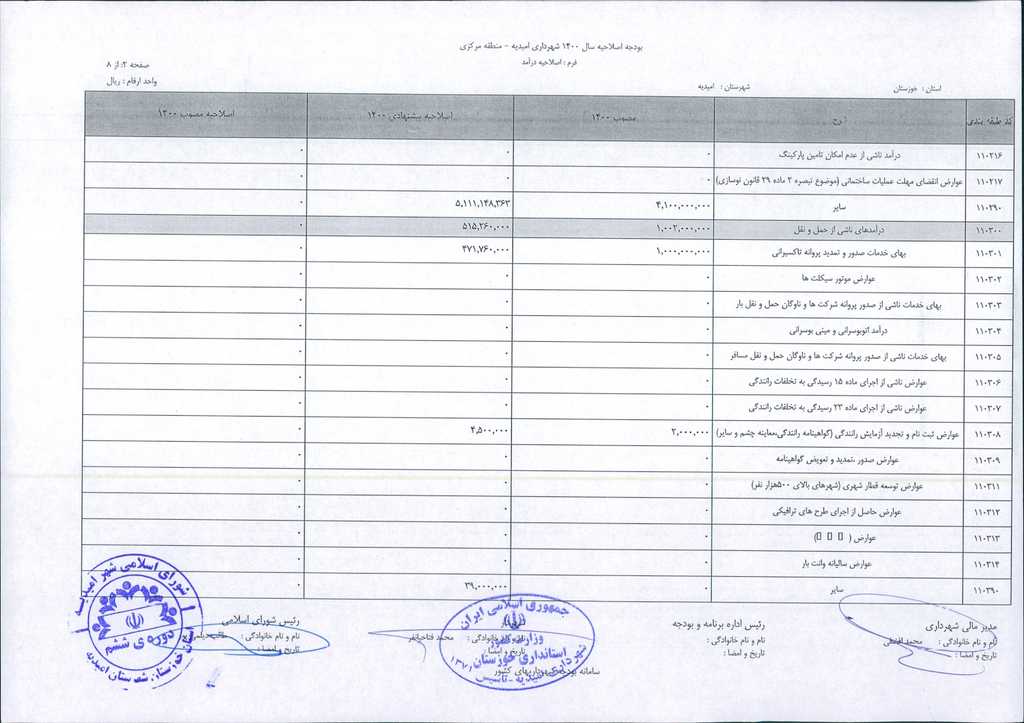 بودجه اصلاحیه سال ۱۴۰۰ شهرداری امیدیه - منطقه مرکزی
فرم : اصلاحیه درآمد
صفحه ۲: از ۸
واحد ارقام : ریال
استان : خوزستان
شهرستان : امیدیه
کد طبقه بندی شرح مصوب ۱۴۰۰ اصلاحیه پیشنهادی ۱۴۰۰ اصلاحیه مصوب ۱۴۰۰
۱۱۰۲۱۶ درآمد ناشی از عدم امکان تامین پارکینگ ۰ ۰ ۰
۱۱۰۲۱۷ عوارض انقضای مهلت عملیات ساختمانی (موضوع تبصره ۲ ماده ۲۹ قانون نوسازی) ۰ ۰ ۰
۱۱۰۲۹۰ سایر ۴,۱۰۰,۰۰۰,۰۰۰ ۵,۱۱۱,۱۴۸,۳۶۳ ۰
۱۱۰۳۰۰ درآمدهای ناشی از حمل و نقل ۱,۰۰۲,۰۰۰,۰۰۰ ۵۱۵,۲۶۰,۰۰۰ ۰
۱۱۰۳۰۱ بهای خدمات صدور و تمدید پروانه تاکسیرانی ۱,۰۰۰,۰۰۰,۰۰۰ ۴۷۱,۷۶۰,۰۰۰ ۰
۱۱۰۳۰۲ عوارض موتور سیکلت ها ۰ ۰ ۰
۱۱۰۳۰۳ بهای خدمات ناشی از صدور پروانه شرکت ها و ناوگان حمل و نقل بار ۰ ۰ ۰
۱۱۰۳۰۴ درآمد اتوبوسرانی و مینی بوسرانی ۰ ۰ ۰
۱۱۰۳۰۵ بهای خدمات ناشی از صدور پروانه شرکت ها و ناوگان حمل و نقل مسافر ۰ ۰ ۰
۱۱۰۳۰۶ عوارض ناشی از اجرای ماده ۱۵ رسیدگی به تخلفات رانندگی ۰ ۰ ۰
۱۱۰۳۰۷ عوارض ناشی از اجرای ماده ۲۳ رسیدگی به تخلفات رانندگی ۰ ۰ ۰
۱۱۰۳۰۸ عوارض ثبت نام و تجدید آزمایش رانندگی (گواهینامه رانندگی،معاینه چشم و سایر) ۲,۰۰۰,۰۰۰ ۴,۵۰۰,۰۰۰ ۰
۱۱۰۳۰۹ عوارض صدور ،تمدید و تعویض گواهینامه ۰ ۰ ۰
۱۱۰۳۱۱ عوارض توسعه قطار شهری (شهرهای بالای ۵۰۰هزار نفر) ۰ ۰ ۰
۱۱۰۳۱۲ عوارض حاصل از اجرای طرح های ترافیکی ۰ ۰ ۰
۱۱۰۳۱۳ عوارض ( ▯ ▯ ▯) ۰ ۰ ۰
۱۱۰۳۱۴ عوارض سالیانه وانت بار ۰ ۰ ۰
۱۱۰۳۹۰ سایر ۰ ۳۹,۰۰۰,۰۰۰ ۰
مدیر مالی شهرداری
نام و نام خانوادگی : محمد
تاریخ و امضا :
رئیس اداره برنامه و بودجه
نام و نام خانوادگی :
تاریخ و امضا :
شهردار
نام و نام خانوادگی : محمد فتاحیانفر
تاریخ و امضا :
رئیس شورای اسلامی
نام و نام خانوادگی :
تاریخ و امضا :
سامانه بودجه شهرداریهای کشور
جمهوری اسلامی ایران
وزارت کشور
استانداری خوزستان
شهرداری امیدیه - تاسیس
شورای اسلامی شهر امیدیه
دوره ی ششم
استان خوزستان شهرستان امیدیه